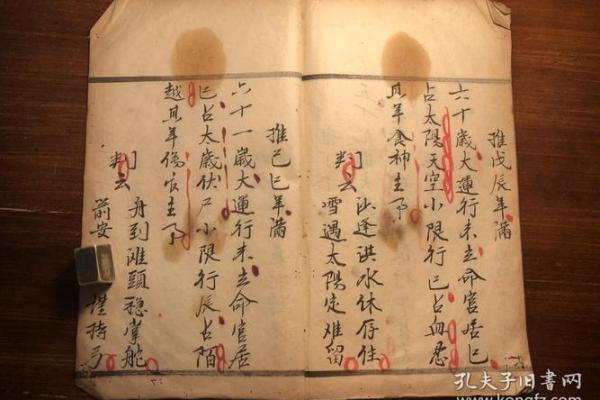 推戊辰年滿
六十歲大運行未立命宮居巳
占太陽天空小限行巳占血忍
其年食神主事
判云
沙逢洪水休存住
雪遇太陽定難留
推己巳年滿
六十一歲大運行未立命宮居
巳占太歲伏尸小限行辰占陌
越其年傷官主事
判云
舟到灘頭穩掌舵
前安 謹持
孔夫子旧书网